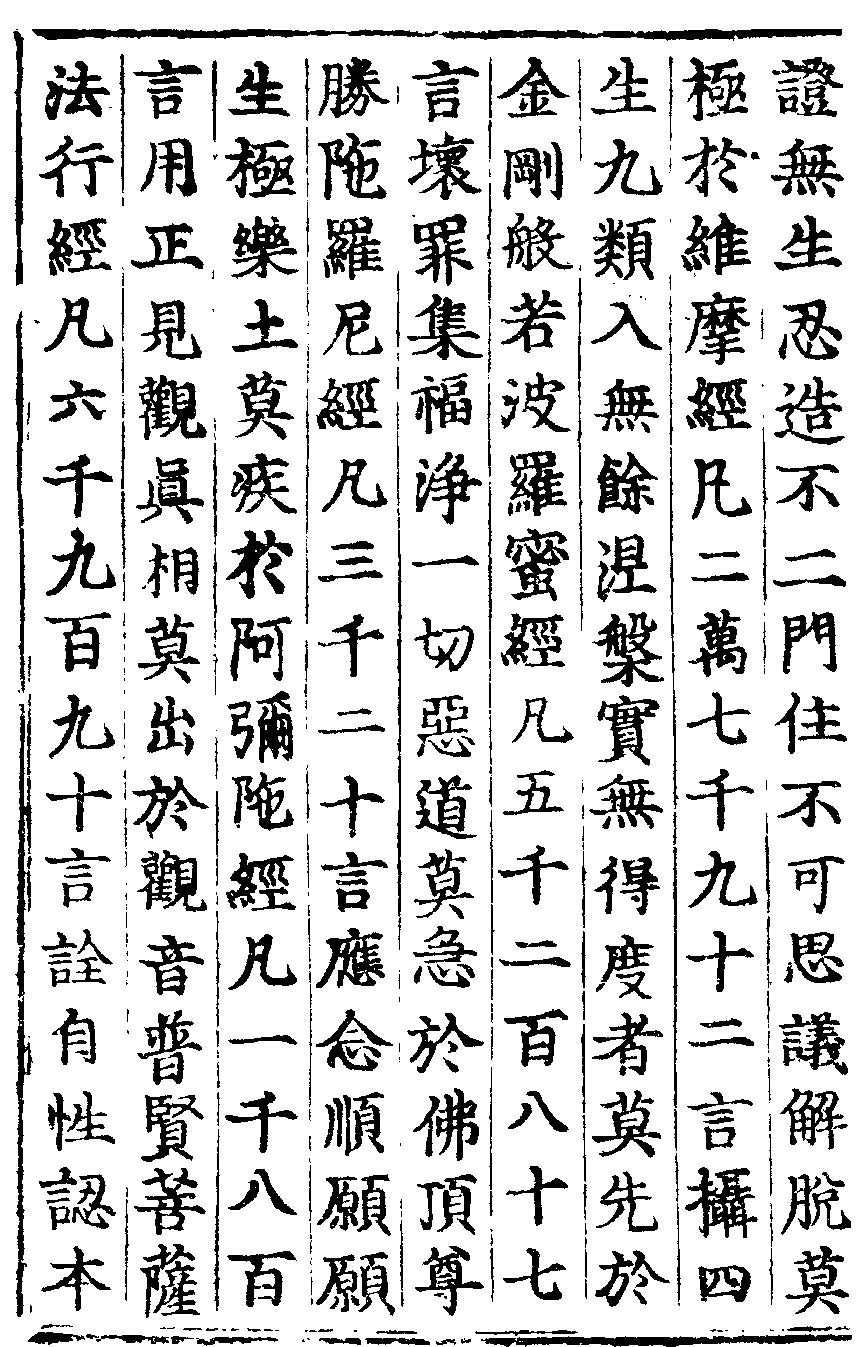 證無生忍造不二門住不可思議解脫莫
極於維摩經凡二萬七千九十二言攝四
生九類入無餘涅槃實無得度者莫先於
金剛般若波羅蜜經凡五千二百八十七
言壞罪集福淨一切惡道莫急於佛頂尊
勝陁羅尼經凡三千二十言應念順願願
生極樂土莫疾於阿彌陁經凡一千八百
言用正見觀眞相莫出於觀音普賢菩薩
法行經凡六千九百九十言詮自性認本